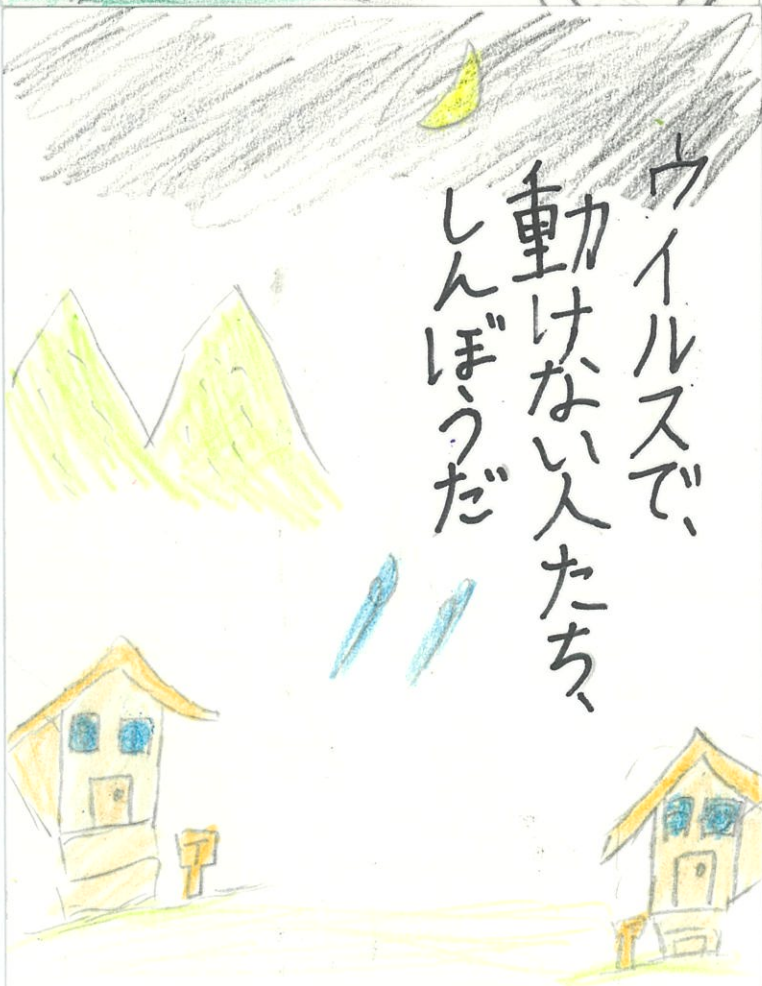 ウイルスで、
動けない人たち、
しんぼうだ